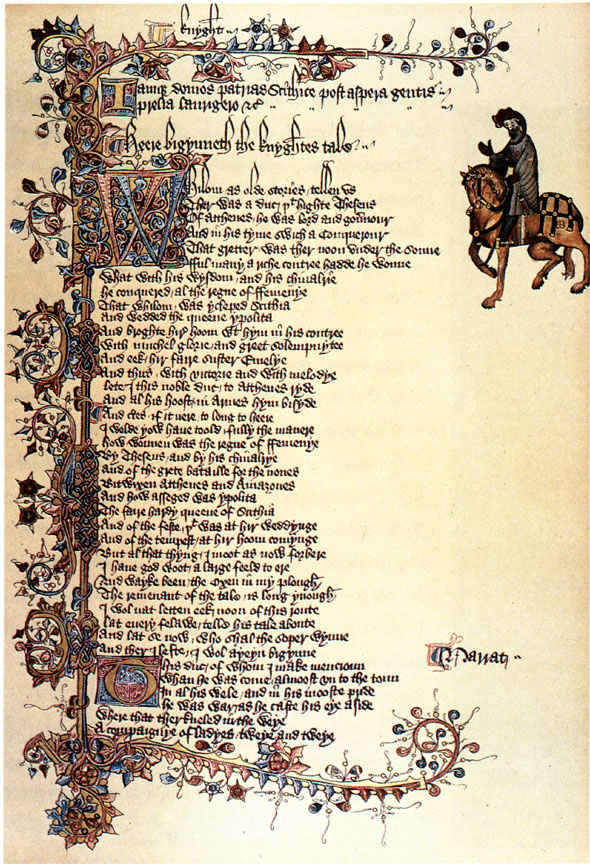 knyght
Iamque domos patrias Scithice post aspera gentis
prelia laurigero &c
Heere bigynneth the knyghtes tale
Whilom as olde stories tellen vs
Ther was a duc þt highte Theseus
Of Atthenes he was lord and gouernour
And in his tyme swich a Conquerour
That gretter was ther noon vnder the sonne
fful many a riche contree hadde he wonne
What with his wysdom and his chiualrie
he conquered al the regne of ffemenye
That whilom was ycleped Scithia
And wedded the queene ypolita
And broghte hir hoom wt hym in his contree
With muchel glorie and greet solempnytee
And eek hir faire suster Emelye
And thus with victorie and with melodye
lete I this noble duc to Atthenes ryde
And al his hoost in Armes hym bisyde
And certes if it nere to long to heere
I wolde yow haue toold fully the manere
how wonnen was the regne of ffemenye
By Theseus and by his chiualrye
And of the grete bataille for the nones
Bitwixen Atthenes and Amazones
And how asseged was ypolita
The faire hardy queene of Scithia
And of the feste þt was at hir weddynge
And of the tempest at hir hoom comynge
But al that thyng I moot as now forbere
I haue god woot a large feeld to ere
And wayke been the Oxen in my plough
The remenant of the tale is long ynough
I wol nat letten eek noon of this route
lat euery felawe telle his tale aboute
And lat se now who shal the soper wynne
And ther I lefte I wol ayeyn bigynne
Narrat
This duc of whom I make mencioun
Whan he was come almoost vn to the toun
In al his wele and in his mooste pride
he was war as he caste his eye aside
Where that ther kneled in the weye
A compaignye of ladyes tweye and tweye